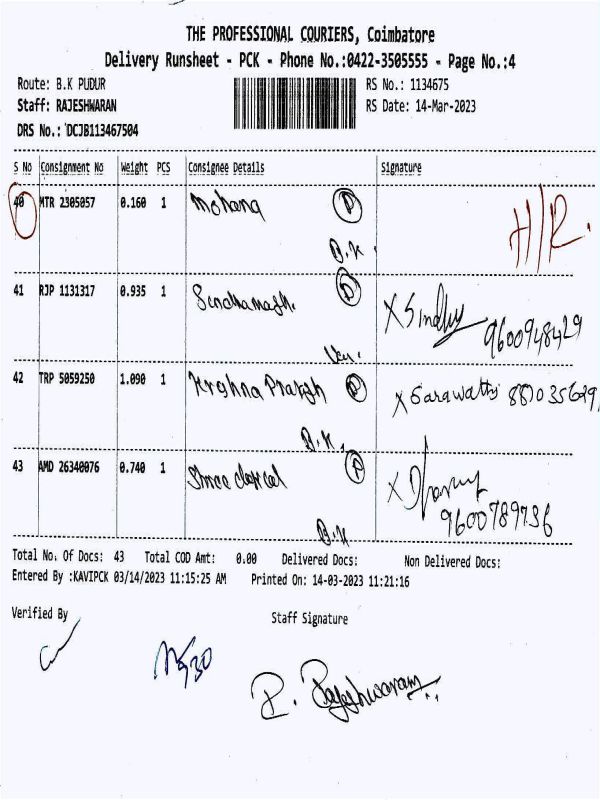 THE PROFESSIONAL COURIERS, Coimbatore
Delivery Runsheet - PCK - Phone No.:0422-3505555 - Page No.:4
Route: B.K PUDUR RS No.: 1134675
Staff: RAJESHWARAN RS Date: 14-Mar-2023
DRS No.: DCJB113467504
S No Consignment No Weight PCS Consignee Details Signature
40 MTR 2305057 0.160 1 Mohana P H/R.
B.K.
41 RJP 1131317 0.935 1 P X Sindhu 9600948429
42 TRP 5059250 1.090 1 Krishna Prakash P X Sarawathi
B.K.
43 AMD 26340076 0.740 1 Shree P X 9600789736
B.K
Total No. Of Docs: 43 Total COD Amt: 0.00 Delivered Docs: Non Delivered Docs:
Entered By :KAVIPCK 03/14/2023 11:15:25 AM Printed On: 14-03-2023 11:21:16
Verified By Staff Signature
P. Rajeshwaran